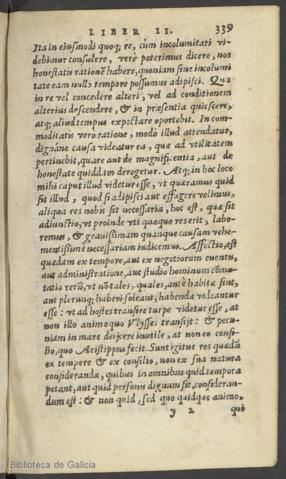 LIBER II. 339
Ita in eiusmodi quoq; re, cùm incolumitati vi-
debimur consulere, verè poterimus dicere, nos
honestatis rationē habere, quoniam sine incolumi
tate eam nullo tempore possumus adipisci. Qua
in re vel concedere alteri, vel ad conditionem
alterius descendere, & in præsentia quiescere,
atq; aliud tempus expectare oportebit. In com-
moditatis verò ratione, modò illud attendatur,
dignáne causa videatur ea, quæ ad vtilitatem
pertinebit, quare aut de magnificentia, aut de
honestate quiddam derogetur. Atq; in hoc loco
mihi caput illud videtur esse, vt quæramus quid
sit illud, quod si adipisci aut effugere velimus,
aliqua res nobis sit necessaria, hoc est, quæ sit
adiunctio, vt proinde vti quæque res erit, labo-
remus, & grauissimam quanque causam vehe-
mentissimè necessariam iudicemus. Affectio, est
quædam ex tempore, aut ex negotiorum euentu,
aut administratione, aut studio hominum cōmu-
tatio rerū, vt nō tales, quales, antè habitæ sint,
aut plerunq; haberi soleant, habendæ videantur
esse: vt ad hostes transire turpe videtur esse, at
non illo animo quo Vlysses transijt: & pecu-
niam in mare deijcere inutile, at non eo consi-
lio, quo Aristippus fecit. Sunt igitur res quædā
ex tempore & ex consilio, non ex sua natura
considerandæ, quibus in omnibus quid tempora
petant, aut quid personis dignum sit, consideran-
dum est: & non quid, sed quo quidque animo,
y 2 quo
Biblioteca de Galicia